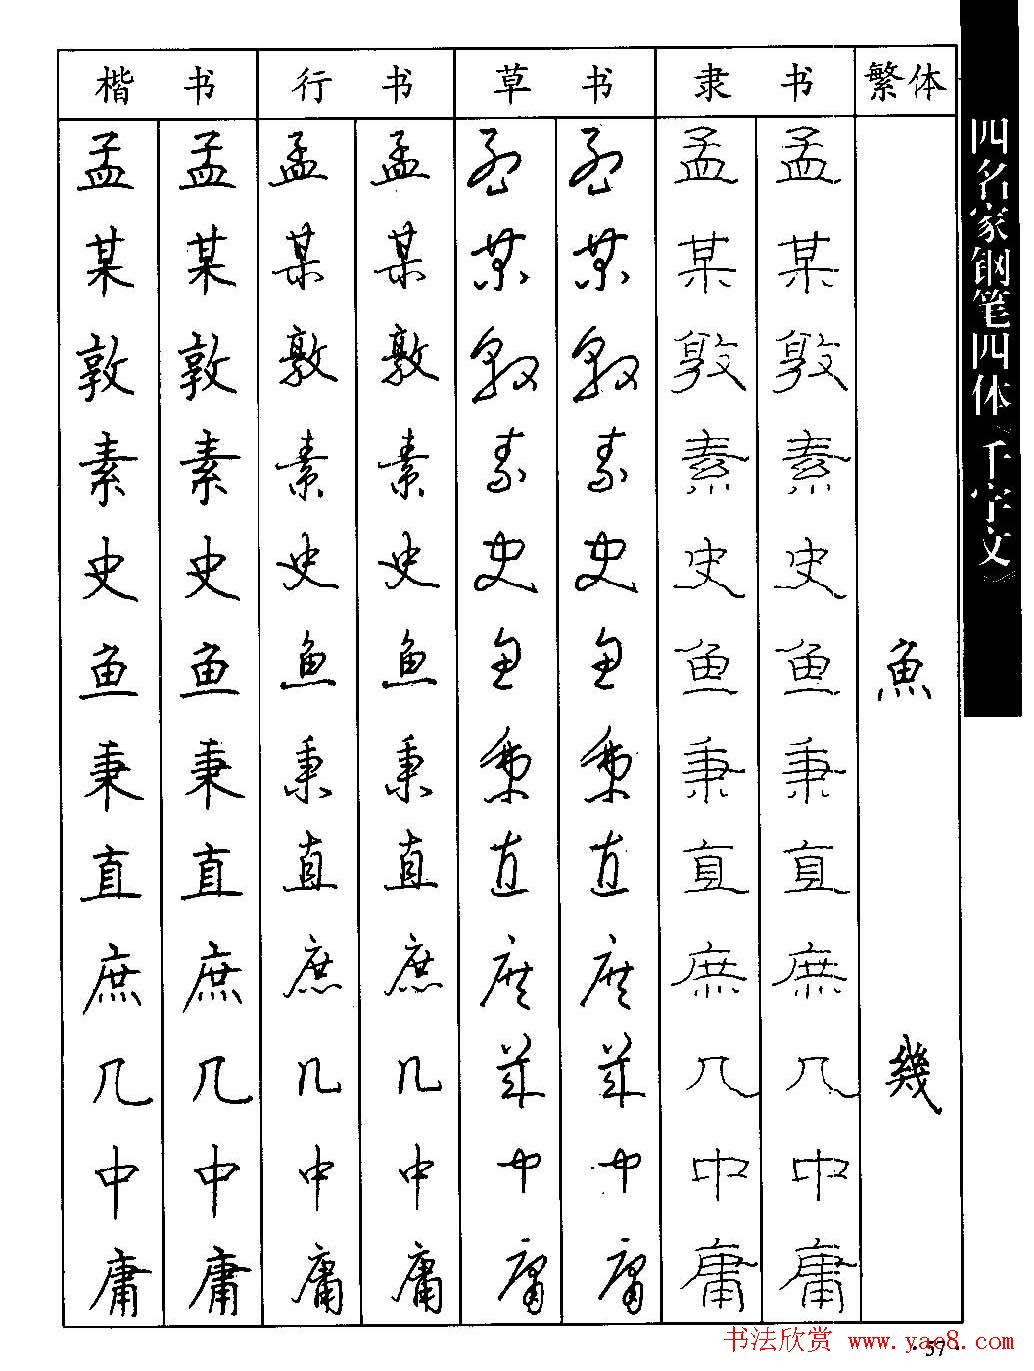 楷书 行书 草书 隶书 繁体
孟 孟 孟 孟 孟 孟 孟 孟
某 某 某 某 某 某 某 某
敦 敦 敦 敦 敦 敦 敦 敦
素 素 素 素 素 素 素 素
史 史 史 史 史 史 史 史
鱼 鱼 鱼 鱼 鱼 鱼 鱼 鱼 魚
秉 秉 秉 秉 秉 秉 秉 秉
直 直 直 直 直 直 直 直
庶 庶 庶 庶 庶 庶 庶 庶
几 几 几 几 几 几 几 几 幾
中 中 中 中 中 中 中 中
庸 庸 庸 庸 庸 庸 庸 庸
四名家钢笔四体《千字文》
书法欣赏 www.yac8.com
·57·